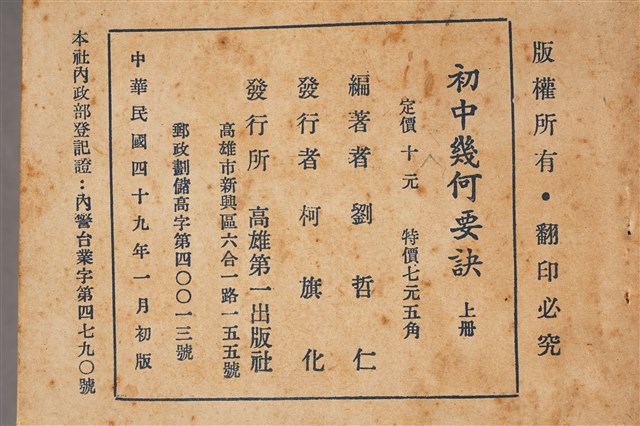 版權所有・翻印必究
初中幾何要訣 上册
定價十元 特價七元五角
編著者 劉哲仁
發行者 柯旗化
發行所 高雄第一出版社
高雄市新興區六合一路一五五號
郵政劃儲高字第四〇〇一三號
中華民國四十九年一月初版
本社內政部登記證：內警台業字第四七九〇號